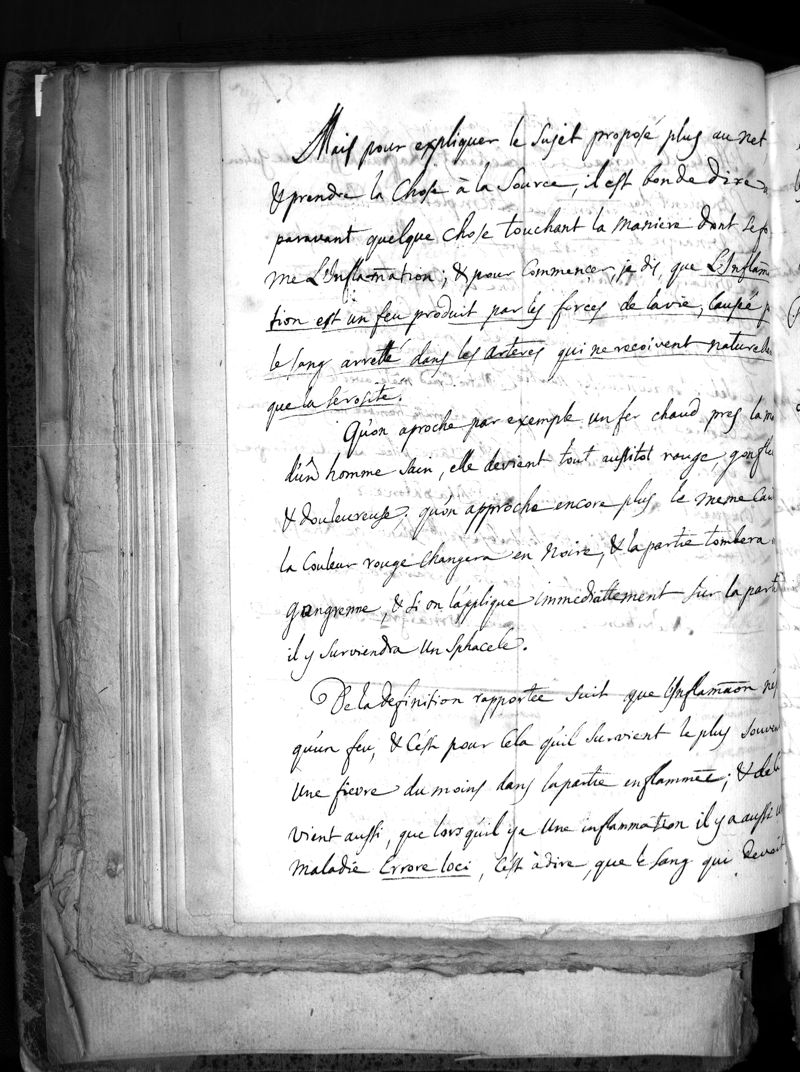 Mais pour expliquer le Sujet proposé plus au net,
& prendre la Chose à la Source, il est bon de dire
paravant quelque chose touchant la maniere dont se fo
me L'Inflamation; & pour Commencer, je dis, que L'Inflam
tion est un feu produit par les forces de la vie, Causé p
le sang arretté dans les arteres qui ne recoivent naturelle
que la serosité.
Qu'on aproche par exemple un fer chaud pres la m
d'un homme sain, elle devient tout aussitot rouge, gonflé
& douleureuse; qu'on approche encore plus le meme
la Couleur rouge Changera en noire, & la partie tombera
gangrenne, & si on l'applique immediattement sur la parti
il y surviendra un Sphacele.
De la definition rapportée suit que l'Inflamaon n'es
qu'un feu, & C'est pour Cela qu'il survient le plus souven
une fievre du moins dans la partie enflammée; & de là
vient aussi, que lors qu'il y a une inflammation il y a aussi u
maladie Errore loci, C'est à dire, que le sang qui Devoit